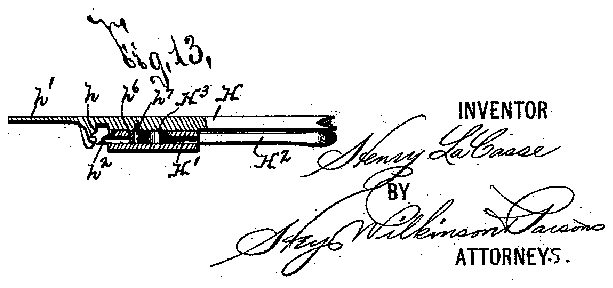 Fig. 13.
h' h h⁶ h⁷ H³ H
h² H' H²
INVENTOR
Henry LaCasse
BY
Hey Wilkinson Parsons
ATTORNEYS.